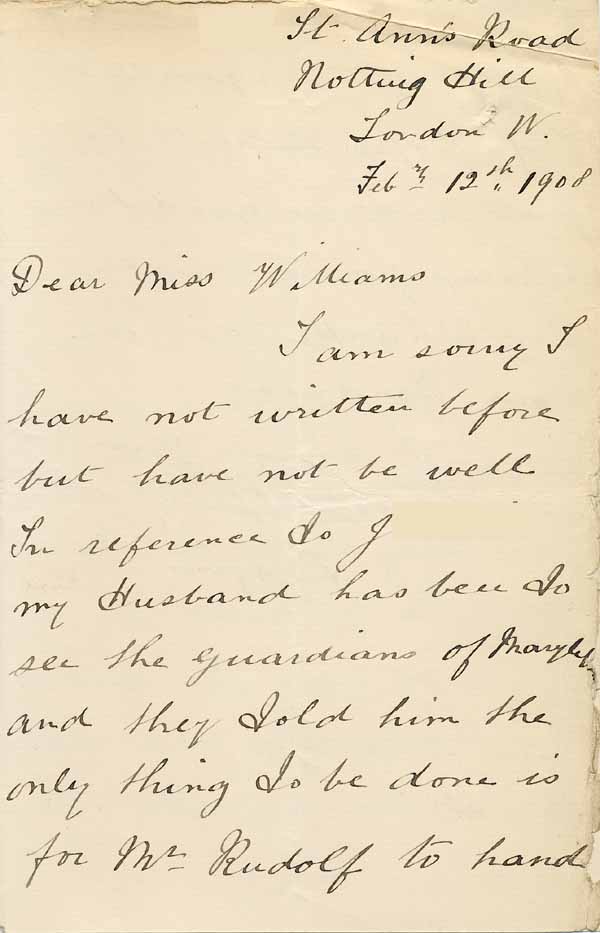 St. Ann's Road
Notting Hill
London W.
Feby 12th 1908
Dear Miss Williams
I am sorry I
have not written before
but have not be well
In reference to J
my Husband has been to
see the guardians of Maryle
and they told him the
only thing to be done is
for Mr Rudolf to hand